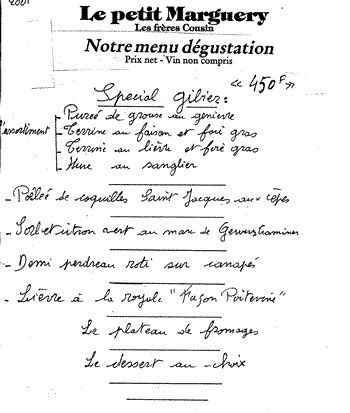 2001
Le petit Marguery
Les frères Cousin
Notre menu dégustation
Prix net - Vin non compris
« 450F »
Special gibier :
l'assortiment
- Pureé de grouse au genievre
- Terrine au faison et foie gras
- Terrine au lièvre et foié gras
- Hure au sanglier
- Poëleé de coquilles Saint Jacques aux cèpes
- Sorbet citron vert au marc de Gewurstraminer
- Demi perdreau roti sur canapés
- Lièvre à la royale "Façon Poitevine"
Le plateau de fromages
Le dessert au choix